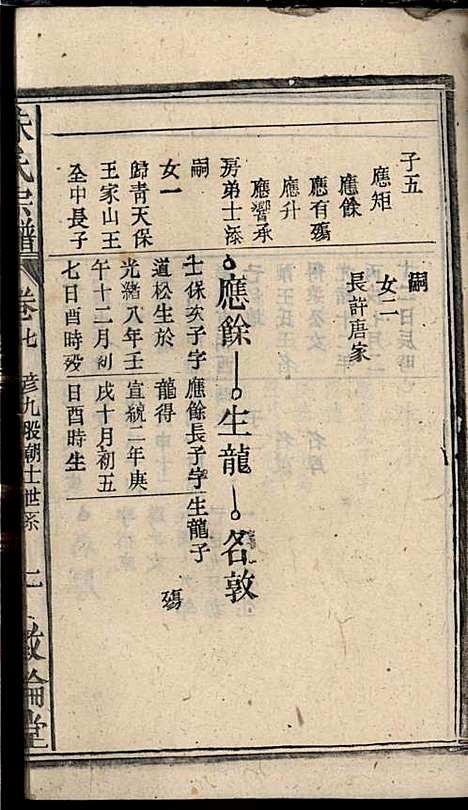 子五
應矩
應餘
應有殤
應升
應響承
房弟士漆
嗣
女一
歸青天保
王家山王
全中長子
嗣
女二
長許唐家
應餘
生龍
名敦
士保次子字
道松生於
光緒八年壬
午十二月初
七日酉時殁
應餘長子字
龍得
宣統二年庚
戌十月初五
日酉時生
生龍子
殤
氏宗譜
卷七
彥九股朝士世系
倫堂